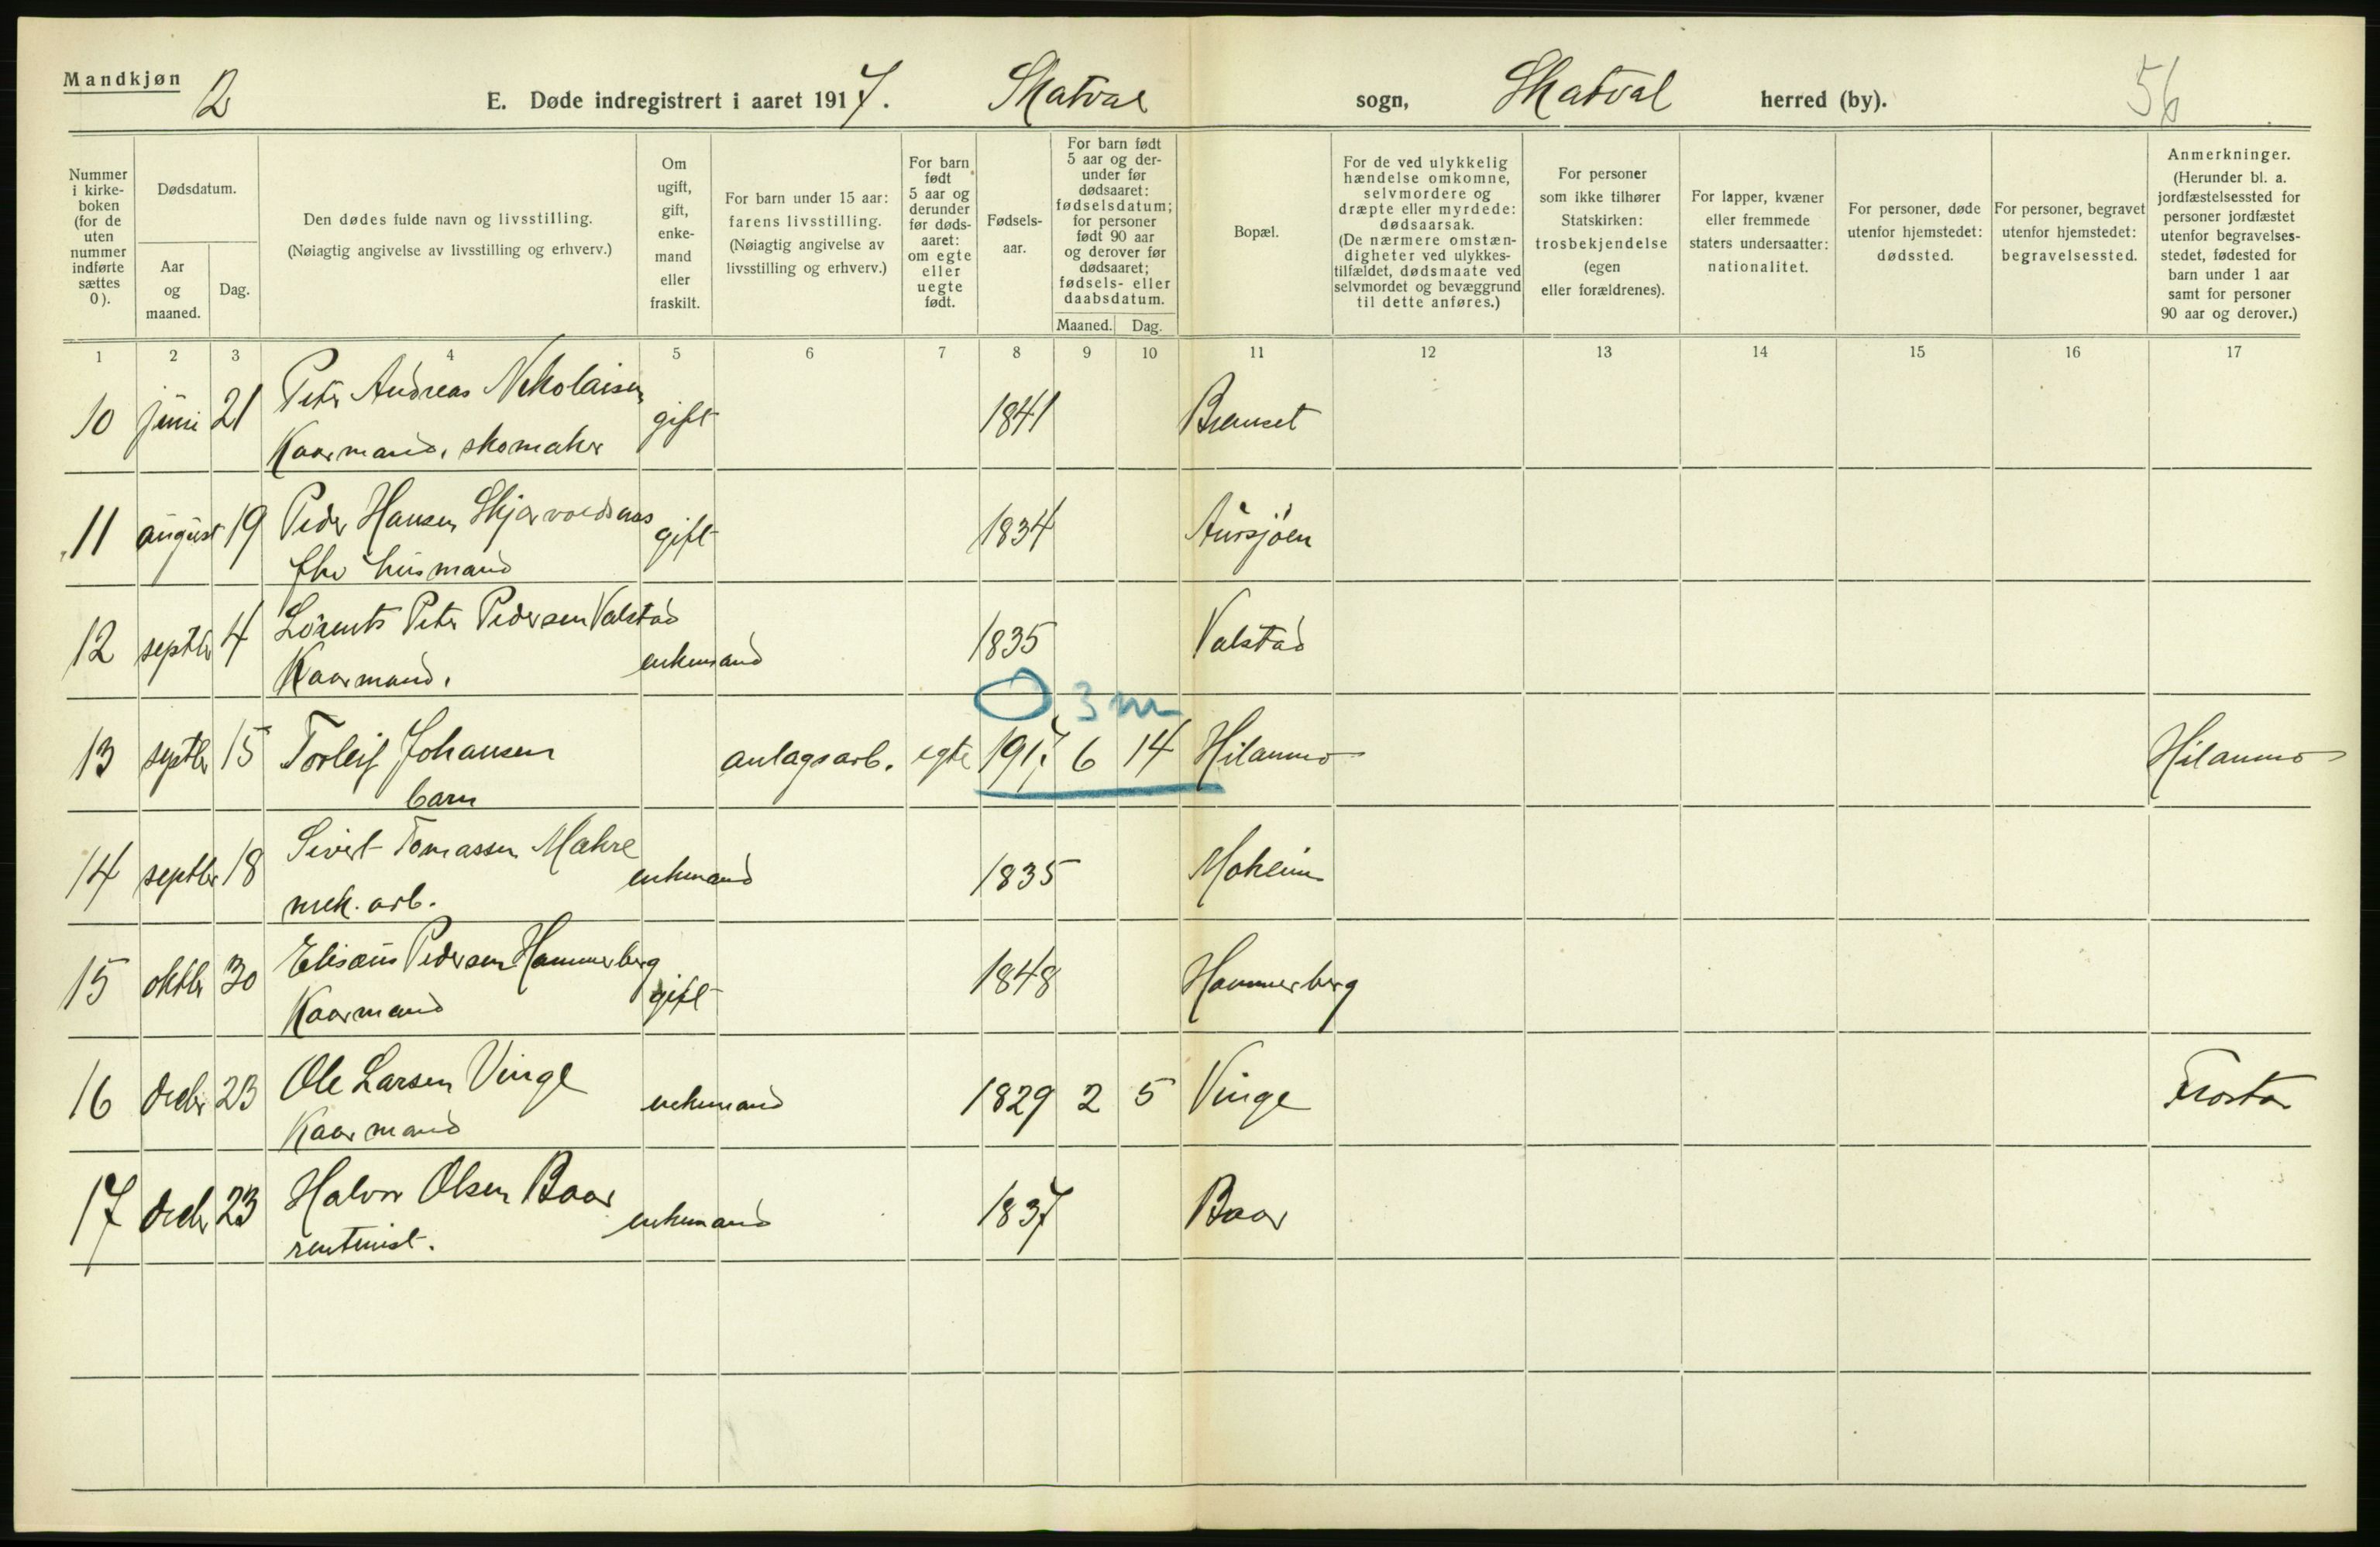 Mandkjøn
2
E. Døde indregistrert i aaret 1917. Skatval sogn, Skatval herred (by).
56
Nummer i kirke-boken (for de uten nummer indførte sættes 0).
Dødsdatum.
Aar og maaned.
Dag.
Den dødes fulde navn og livsstilling.
(Nøiagtig angivelse av livsstilling og erhverv.)
Om ugift, gift, enke-mand eller fraskilt.
For barn under 15 aar: farens livsstilling.
(Nøiagtig angivelse av livsstilling og erhverv.)
For barn født 5 aar og derunder før døds-aaret: om egte eller uegte født.
Fødsels-aar.
For barn født 5 aar og der-under før dødsaaret: fødselsdatum; for personer født 90 aar og derover før dødsaaret; fødsels- eller daabsdatum.
Maaned. Dag.
Bopæl.
For de ved ulykkelig hændelse omkomne, selvmordere og dræpte eller myrdede: dødsaarsak.
(De nærmere omstæn-digheter ved ulykkes-tilfældet, dødsmaate ved selvmordet og bevæggrund til dette anføres.)
For personer som ikke tilhører Statskirken: trosbekjendelse (egen eller forældrenes).
For lapper, kvæner eller fremmede staters undersaatter: nationalitet.
For personer, døde utenfor hjemstedet: dødssted.
For personer, begravet utenfor hjemstedet: begravelsessted.
Anmerkninger.
(Herunder bl. a. jordfæstelsessted for personer jordfæstet utenfor begravelses-stedet, fødested for barn under 1 aar samt for personer 90 aar og derover.)
1 2 3 4 5 6 7 8 9 10 11 12 13 14 15 16 17
10 juni 21 Peter Andreas Nikolaisen gift 1841
Kaarmand, skomaker
11 august 19 Peder Hansen gift 1834 Aursjøen
fhv husmand
12 septbr 4 Lorents Peter Pedersen Valstad enkemand 1835 Valstad
Kaarmand.
0 3 m
13 septbr 15 Torleif Johansen anlagsarb. egte 1917 6 14 Hilammo Hilammo
barn
14 septbr 18 Sivert Tomassen Mæhre enkemand 1835 Moheim
mek. arb.
15 oktbr 30 Elisæus Pedersen Hammerberg gift 1848 Hammerberg
Kaarmand
16 decbr 23 Ole Larsen Vinge enkemand 1829 2 5 Vinge Frosta
Kaarmand
17 decbr 23 Halvor Olsen Baar enkemand 1837 Baar
rentenist.